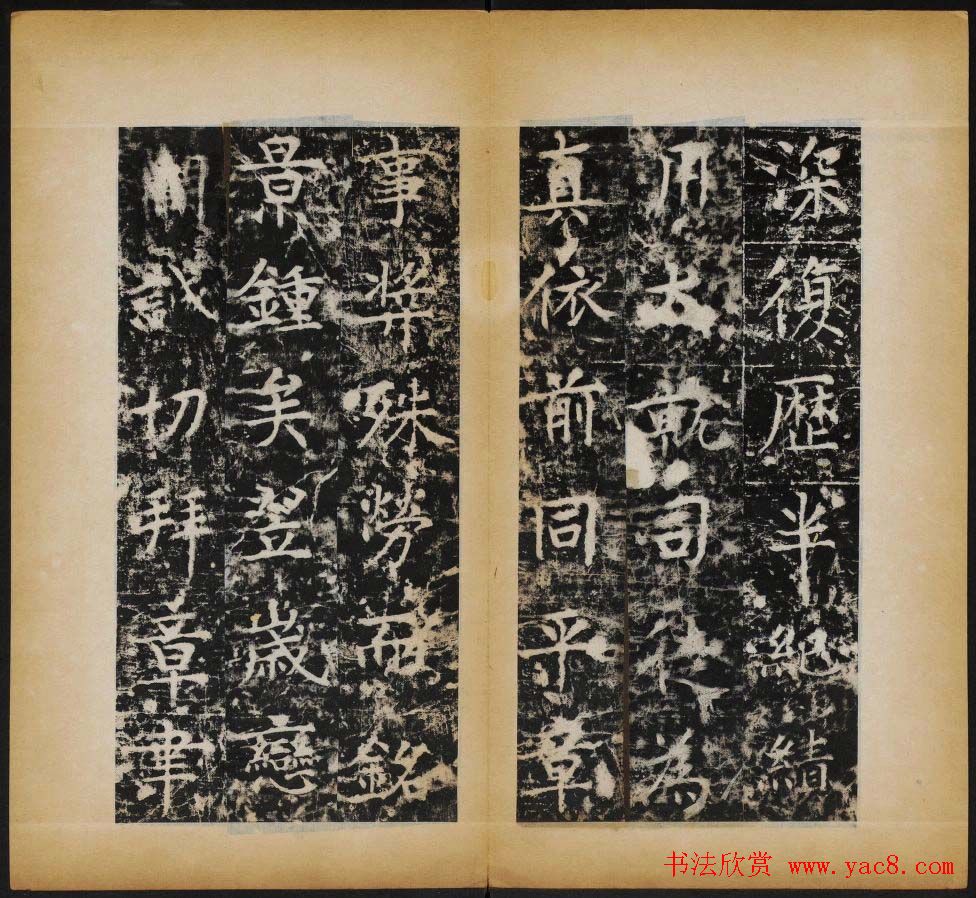 深復歷半紀績
用大就司徒為
真依前同平章
事蔣殊勞而銘
景鍾矣翌歲戀
闕誠切拜章聿
书法欣赏 www.yac8.com